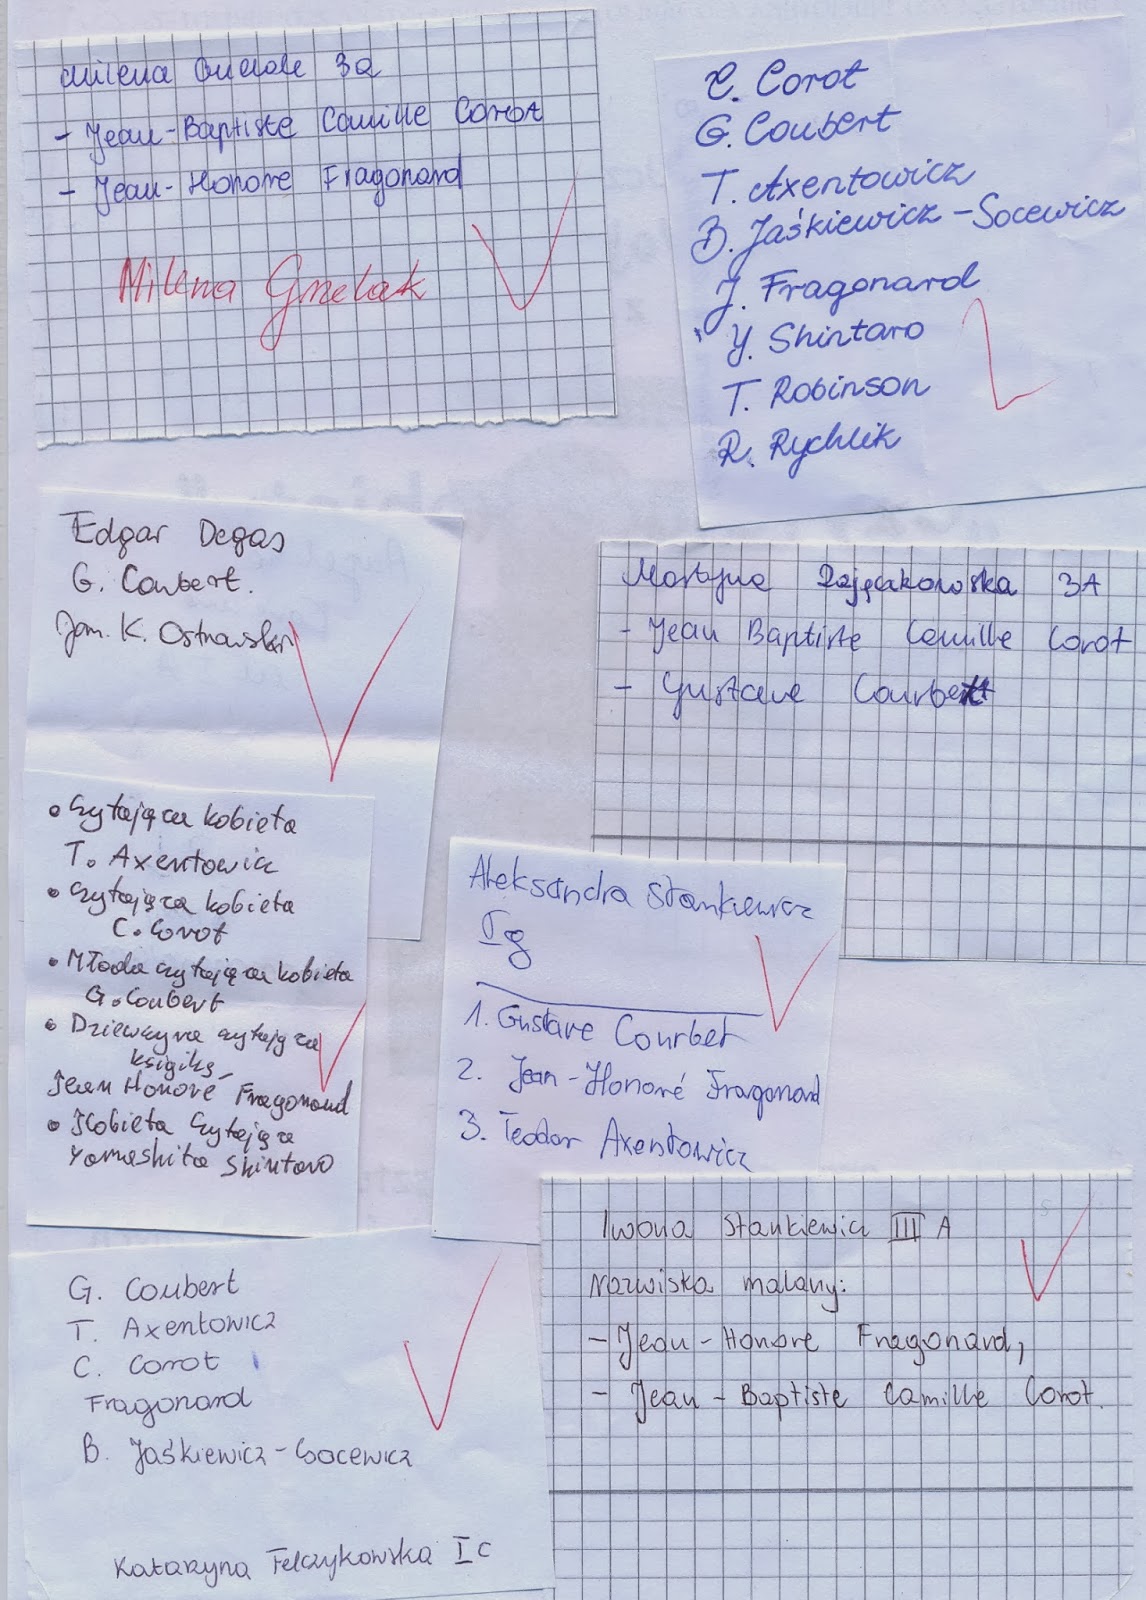 Milena Gnelak 3a
- Jean-Baptiste Camille Corot
- Jean-Honore Fragonard
Milena Gnelak
C. Corot
G. Coubert
T. Axentowicz
B. Jaśkiewicz-Socewicz
J. Fragonard
Y. Shintaro
T. Robinson
R. Rychlik
Edgar Degas
G. Coubert.
Jan. K. Ostrowski
Martyna 3A
- Jean Baptiste Camille Corot
- Gustave Courbet
• Czytająca kobieta
T. Axentowicz
• Czytająca kobieta
C. Corot
• Młoda czytająca kobieta
G. Coubert
• Dziewczyna czytająca
książkę
Jean Honoré Fragonard
• Kobieta Czytająca
Yamashita Shintaro
Aleksandra Stankiewicz
Ig
1. Gustave Courbet
2. Jean-Honoré Fragonard
3. Teodor Axentowicz
G. Coubert
T. Axentowicz
C. Corot
Fragonard
B. Jaśkiewicz-Socewicz
Katarzyna Felczykowska Ic
Iwona Stankiewicz III A
Nazwiska malarzy:
- Jean-Honore Fragonard,
- Jean-Baptiste Camille Corot.